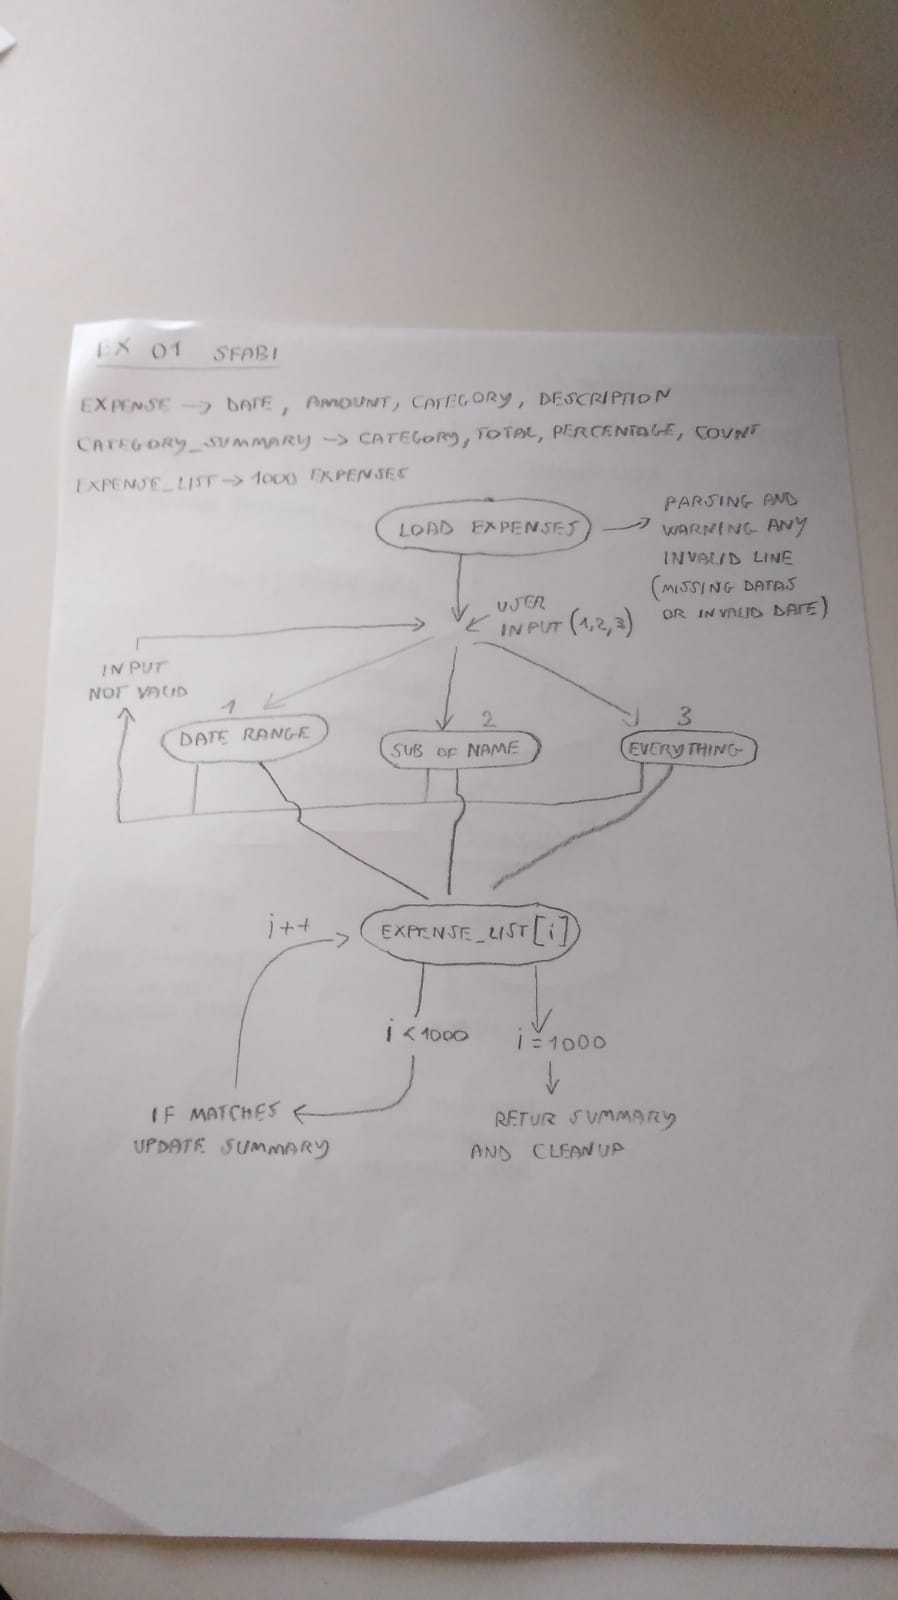 EX 01 SFABI
EXPENSE → DATE, AMOUNT, CATEGORY, DESCRIPTION
CATEGORY_SUMMARY → CATEGORY, TOTAL, PERCENTAGE, COUNT
EXPENSE_LIST → 1000 EXPENSES
LOAD EXPENSES
PARSING AND
WARNING ANY
INVALID LINE
(MISSING DATAS
OR INVALID DATE)
USER
INPUT (1,2,3)
INPUT
NOT VALID
1
DATE RANGE
2
SUB OF NAME
3
EVERYTHING
i++
EXPENSE_LIST[i]
i < 1000
i = 1000
IF MATCHES
UPDATE SUMMARY
RETUR SUMMARY
AND CLEANUP